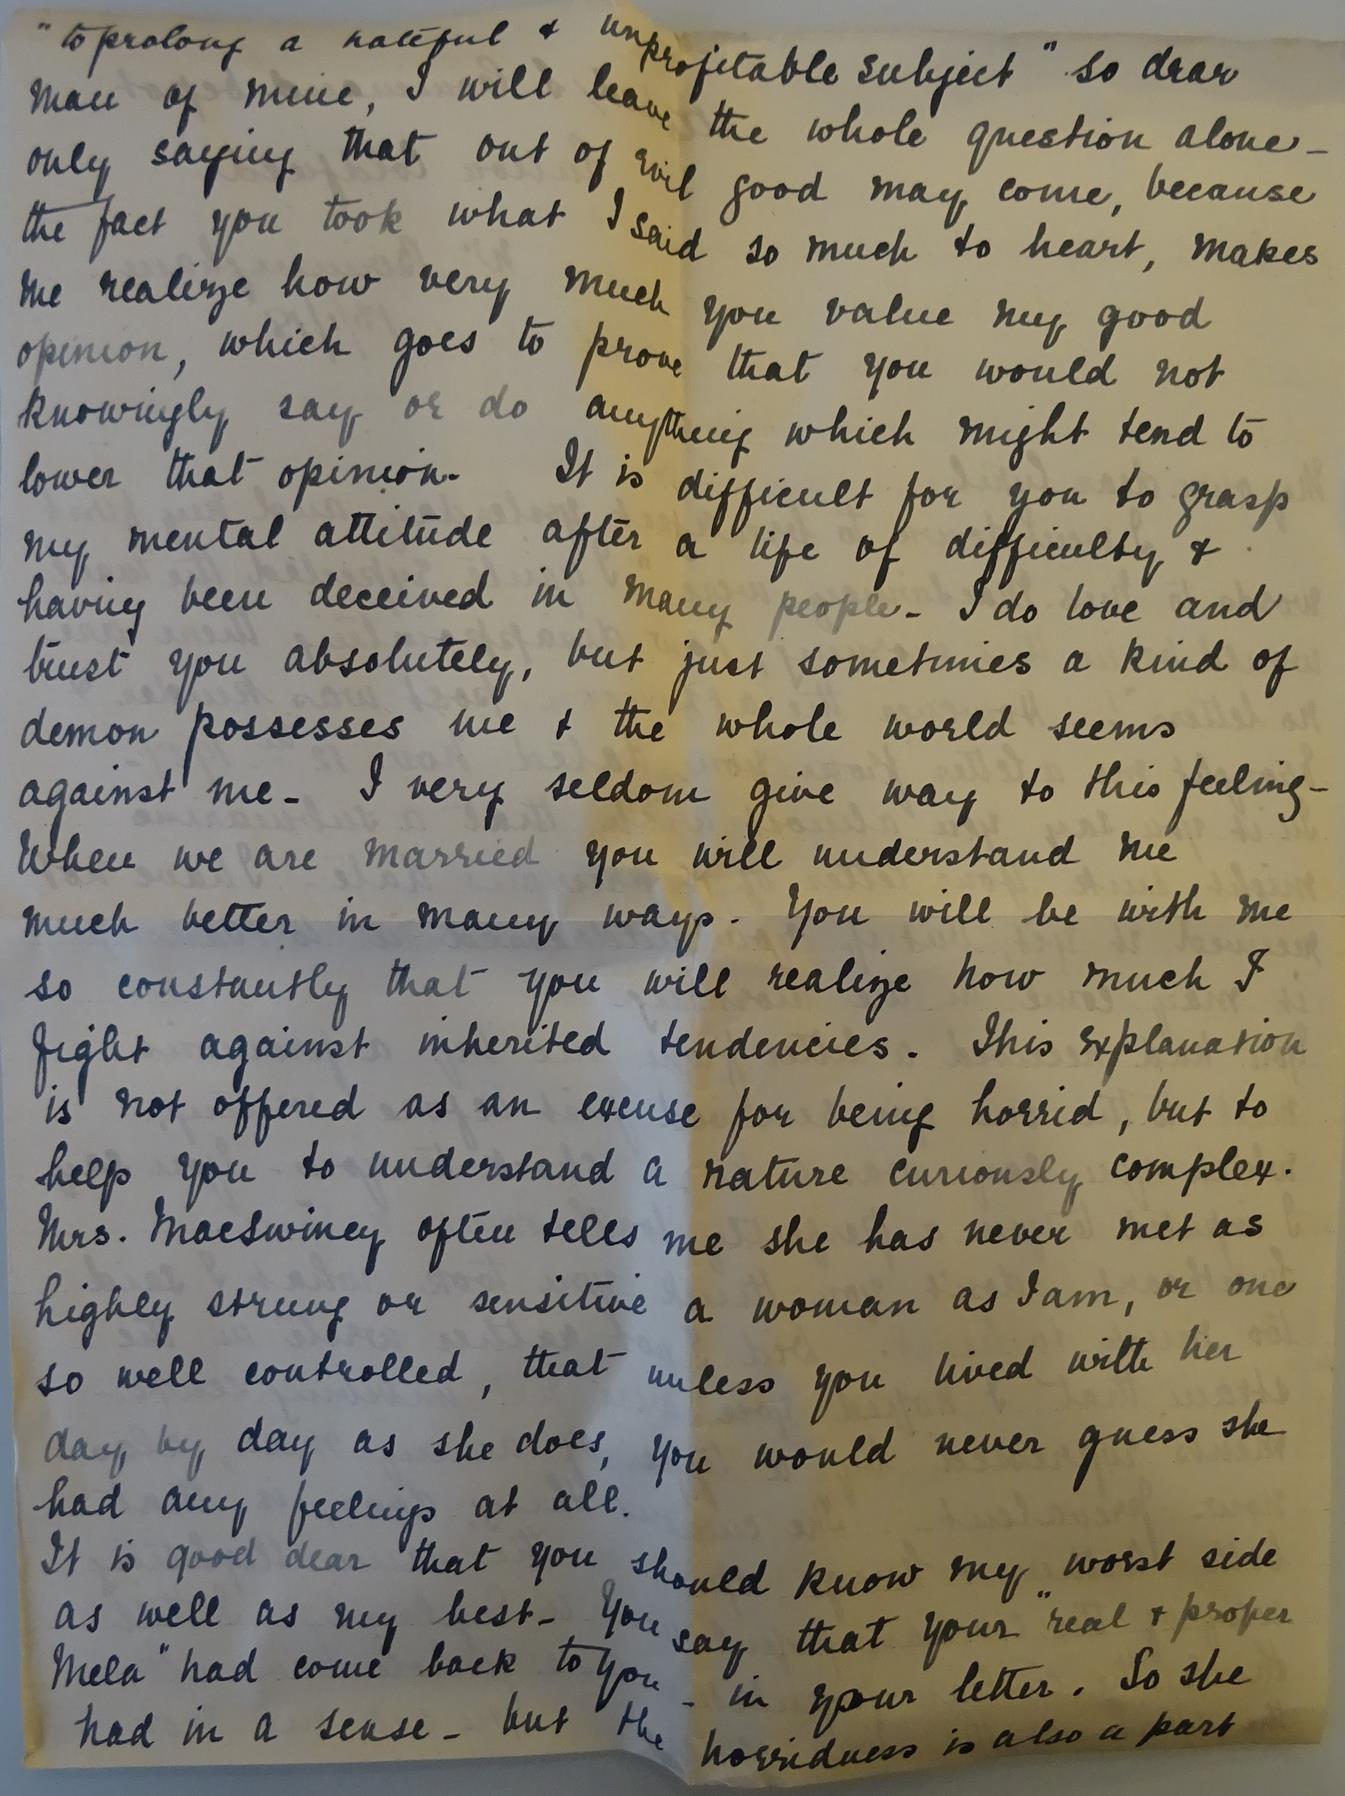 "to prolong a hateful & unprofitable subject" so dear
man of mine, I will leave the whole question alone –
only saying that out of evil good may come, because
the fact you took what I said so much to heart, makes
me realize how very much you value my good
opinion, which goes to prove that you would not
knowingly say or do anything which might tend to
lower that opinion. It is difficult for you to grasp
my mental attitude after a life of difficulty &
having been deceived in many people – I do love and
trust you absolutely, but just sometimes a kind of
demon possesses me & the whole world seems
against me – I very seldom give way to this feeling –
When we are married you will understand me
much better in many ways. You will be with me
so constantly that you will realize how much I
fight against inherited tendencies. This explanation
is not offered as an excuse for being horrid, but to
help you to understand a nature curiously complex.
Mrs. MacSwiney often tells me she has never met as
highly strung or sensitive a woman as I am, or one
so well controlled, that unless you lived with her
day by day as she does, you would never guess she
had any feelings at all.
It is good dear that you should know my worst side
as well as my best – You say that your "real & proper
Mela" had come back to you – in your letter. So she
had in a sense – but the horridness is also a part